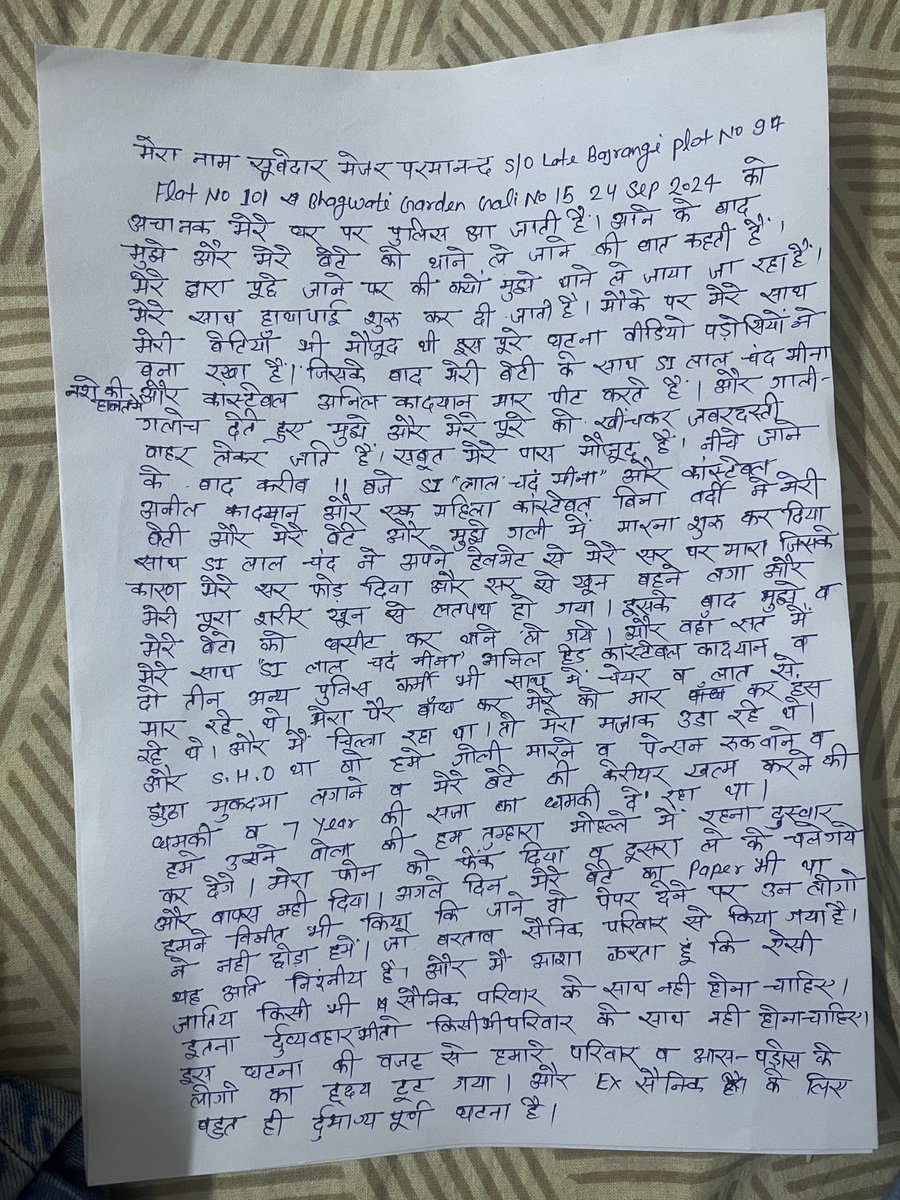 मेरा नाम सूवेदार मेजर परमानन्द S/O Late Bajrangi plot No 97
Flat No 101 Bhagwati Garden Gali No 15 24 Sep 2024 को
अचानक मेरे घर पर पुलिस आ जाती है। आने के बाद
मुझे और मेरे बेटे को थाने ले जाने की बात कहती है।
मेरे द्वारा पूछे जाने पर की क्यों मुझे थाने ले जाया जा रहा है।
मेरे साथ हाथापाई शुरू कर दी जाती है। मौके पर मेरे साथ
मेरी बेटियाँ भी मौजूद थी इस पूरे घटना वीडियो पड़ोसियों ने
बना रखा है। जिसके बाद मेरी बेटी के साथ SI लाल चंद मीना
नशे की हालत मे और कांस्टेबल अनिल कादयान मार पीट करते हैं। और गाली-
गलोच देते हुए मुझे और मेरे पूरे को खींचकर जबरदस्ती
बाहर लेकर जाते हैं। सबूत मेरे पास मौजूद है। नीचे जाने
के बाद करीब 11 बजे SI "लाल चदं मीना" और कांस्टेबल
अनील कादयान और एक महिला कांस्टेबल बिना वर्दी में मेरी
बेटी और मेरे बेटे और मुझे गली में मारना शुरू कर दिया
साथ SI लाल चंद ने अपने हेलमेट से मेरे सर पर मारा जिसके
कारण मेरे सर फोड दिया और सर से खून बहने लगा और
मेरी पूरा शरीर खून से लतपथ हो गया। इसके बाद मुझे व
मेरे बेटो को घसीट कर थाने ले गये। और वहाँ रात में
मेरे साथ "SI लाल चदं मीना" अनिल हेड कांस्टेबल कादयान व
दो तीन अन्य पुलिस कर्मी भी साथ में चेयर व लात से
मार रहे थे। मेरा पैर बाँध कर मेरे को मार कर हंस
रहे थे। और मैं चिल्ला रहा था। तो मेरा मजाक उडा रहे थे।
और S.H.O था वो हमे गोली मारने व पेन्सन रुकवाने व
झूठा मुकदमा लगाने व मेरे बेटे की केरीयर खत्म करने की
धमकी व 7 Year की सजा का धमकी दे रहा था।
हमे उसने बोला की हम तुम्हारा मोहल्ले में रहना दुस्वार
कर देगें। मेरा फोन को फेंक दिया व दूसरा ले के चले गये
और वापस नही दिया। अगले दिन मेरे बेटे का Paper भी था
हमने विन्रीत भी किया कि जाने दो पेपर देने पर उन लोगो
ने नही छोडा हमें। जो बरताव सैनिक परिवार से किया गया है।
यह अति निंदनीय है। और मै आशा करता हूं कि ऐसी
जातिय किसी भी सैनिक परिवार के साथ नही होना चाहिए।
इतना र्दुव्यवहार भी तो किसी भी परिवार के साथ नही होना चाहिए।
इस घटना की वजह से हमारे परिवार व आस-पडोस के
लोगो का हृदय टूट गया। और EX सैनिक के लिए
बहुत ही र्दुभाग्य पूर्ण घटना है।